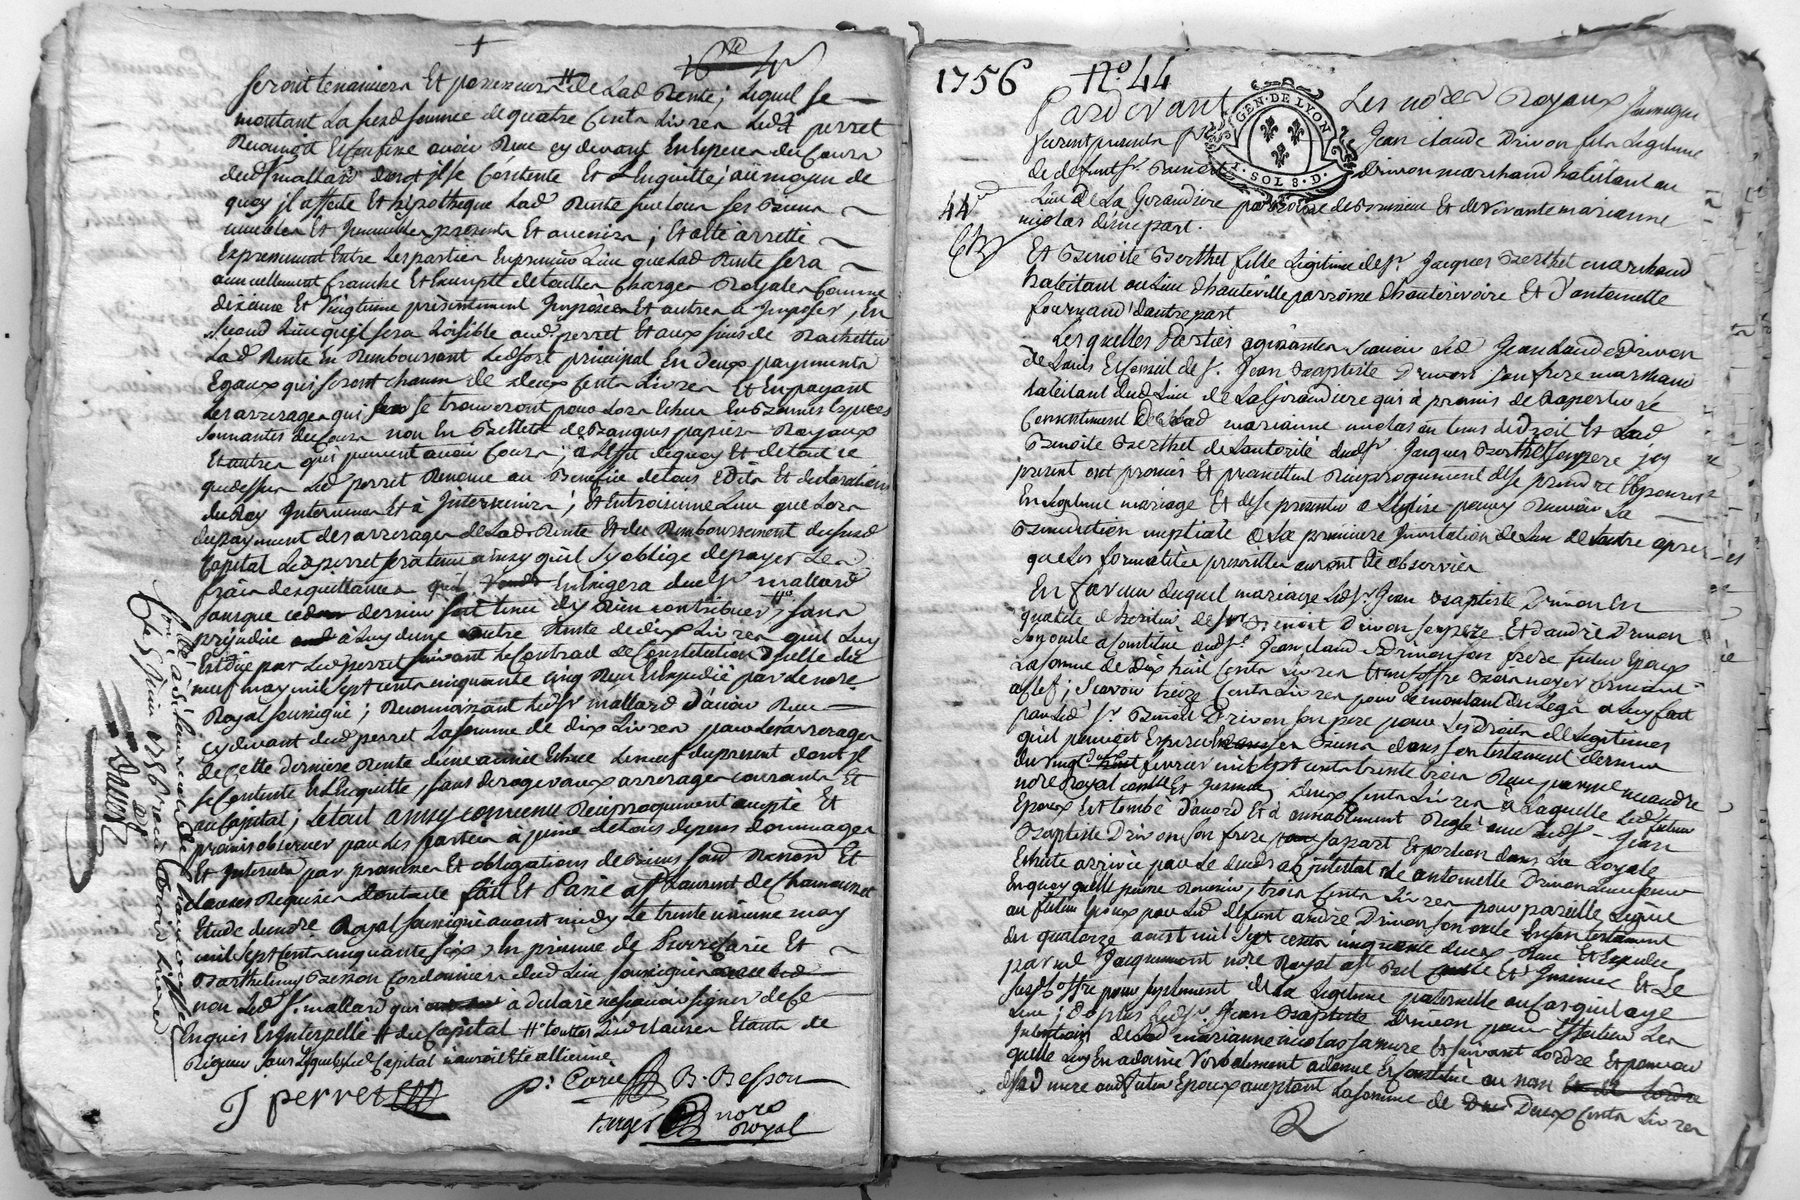 seront tenanciers Et possesseurs de Lad Rente; Lequel se
montant La susd somme de quatre Cents Livres Led perret
Reconnoit Et confesse avoir Reçue cy devant En Especes du Cours
dud Sr mallard dont il se Contente Et L'en quitte, au moyen de
quoy il affecte Et hipotheque Lad Rente sur tous ses Biens
meubles Et Immeubles presents Et avenirs; Et a été arretté
Expressement Entre Les parties En premier Lieu que Lad Rente sera
annuellement franche Et Exempte de toutes Charges Royales Comme
dixieme Et Vingtieme présentement Imposées Et autres a Imposer, En
second Lieu qu'il sera Loisible aud perret Et aux siens de Rachetter
Lad Rente En Remboursant Led sort principal En deux payements
Egaux qui seront chacun de deux Cents Livres Et En payant
Les arrerages qui se trouveront pour Lors Echus En Bonnes Especes
sonnantes du Cours non En Billets de Banques papiers Royaux
Et autres qui peuvent avoir Cours; a L'effet de quoy Et de tout ce
que dessus Led perret Renonce au Benefice de tous Edits Et declarations
du Roy Intervenus Et à Intervenir; Et En troisieme Lieu que Lors
du payement des arrerages de Lad Rente Et du Remboursement dud
Capital Led perret sera tenu ainsy qu'il s'y oblige de payer Les
frais des quittances qu'il Exigera dud Sr mallard
sans que ce dernier soit tenu d'y rien contribuer, sans
préjudice à Luy d'une autre Rente de dix Livres qu'il Luy
Est düe par Led perret suivant le Contract de Constitution d'icelle du
neuf may mil sept cents cinquante cinq Reçu Et Expedié par Le nore
Royal soussigné; Reconnaissant Led Sr mallard d'avoir Reçu
cy devant dud perret La somme de dix Livres pour Les arrerages
de Cette derniere Rente d'une année Echue Le neuf du present dont il
se Contente Et L'en quitte, sans deroger aux arrerages courants Et
au Capital; Le tout ainsy convenu Reciproquement accepté Et
promis observer par Les parties à peine de tous depens dommages
Et Interets par promesses Et obligations de Biens sous Renond Et
clauses Requises dont acte fait Et Passé a St Laurent de Chamousset
Etude dud nore Royal soussigné avant midy Le trente unieme may
mil sept Cents cinquante six, En presence de Pierre Carie Et
Barthelemy Besson Cordonniers dud Lieu soussignés avec Led
non Led Sr mallard qui a declaré ne sçavoir signer de Ce
Enquis Et Interpellé # du Capital # toutes Lesd clauses Etants de
Rigueur sans Lesquelles Led Capital n'auroit Eté alliené
J perret
p. Carie B. Besson
Berger nore
Royal
1756 No. 44
GEN. DE LYON
1. SOL 8. D.
Pardevant Les nores Royaux soussignés
furent presents sr Jean claude Drivon fils Legitime
de defunt Sr Benoit Drivon marchand habitant au
Lieu de La Girandiere parroisse de Brussieu Et de Vivante marianne
nicolas d'une part.
44
Et Benoite Berthet fille Legitime de Sr Jacques Berthet marchand
habitant au Lieu d'hauteville parroisse d'hauterivoire Et d'antoinette
fournand d'autre part
Lesquelles Parties agissantes scavoir Led Jean Claude Drivon
de L'avis Et Conseil de Sr Jean Baptiste Drivon son frere marchand
habitant dud Lieu de La Girandiere qui a promis de Rapporter Le
Consentement de Lad marianne nicolas en tems de Droit Et Lad
Benoite Berthet de L'autorité dud Sr Jacques Berthet son pere icy
present ont promis Et promettent Reciproquement de se prendre Et Epouser
En Legitime mariage Et de se presenter a L'Eglise pour y Recevoir La
Benediction nuptiale a La premiere Invitation de L'un de L'autre apres
que Les formalités prescrittes auront Eté observées
En faveur duquel mariage Led Sr Jean Baptiste Drivon En
qualité d'heritier de Sr Benoit Drivon son pere Et d'andré Drivon
son oncle a Constitué aud Sr Jean Claude Drivon son frere futur Epoux
La somme de dix huit Cents Livres
a Cet; scavoir treize Cents Livres pour Le montant du Legs a Luy fait
par Led Sr Benoit Drivon son pere pour Les Droits de Legitimes
qu'il pouvoit Esperer sur ses Biens dans son testament dernier
du vingt fevrier mil sept cents trente trois Reçu par
nore Royal Controllé Et Insinué, deux Cents Livres à Laquelle Led futur
Epoux Est tombé d'acord Et a amiablement Reglé avec Led Sr Jean
Baptiste Drivon son frere sa part Et portion dans La Loyale
Echute arrivée par Le deceds ab intestat de antoinette Drivon Leur soeur
En quoy qu'elle puisse Revenir, trois Cents Livres pour pareille Leguée
au futur Epoux par Led defunt andré Drivon son oncle En son testament
du quatorze aoust mil sept cents cinquante deux Reçu Et Expedié
par me Jacquemont nore Royal Controllé Et Insinué Et Le
susd offre pour suplement de La Legitime paternelle au Cas qu'il y aye
Lieu; de plus Led Sr Jean Baptiste Drivon pour Effectuer Les
Intentions de Lad marianne nicolas sa mere Et suivant L'ordre Et pouvoir
qu'elle Luy En a donné Verbalement a donné Et Constitué au nom
de Lad mere aud futur Epoux acceptant La somme de Deux Cents Livres